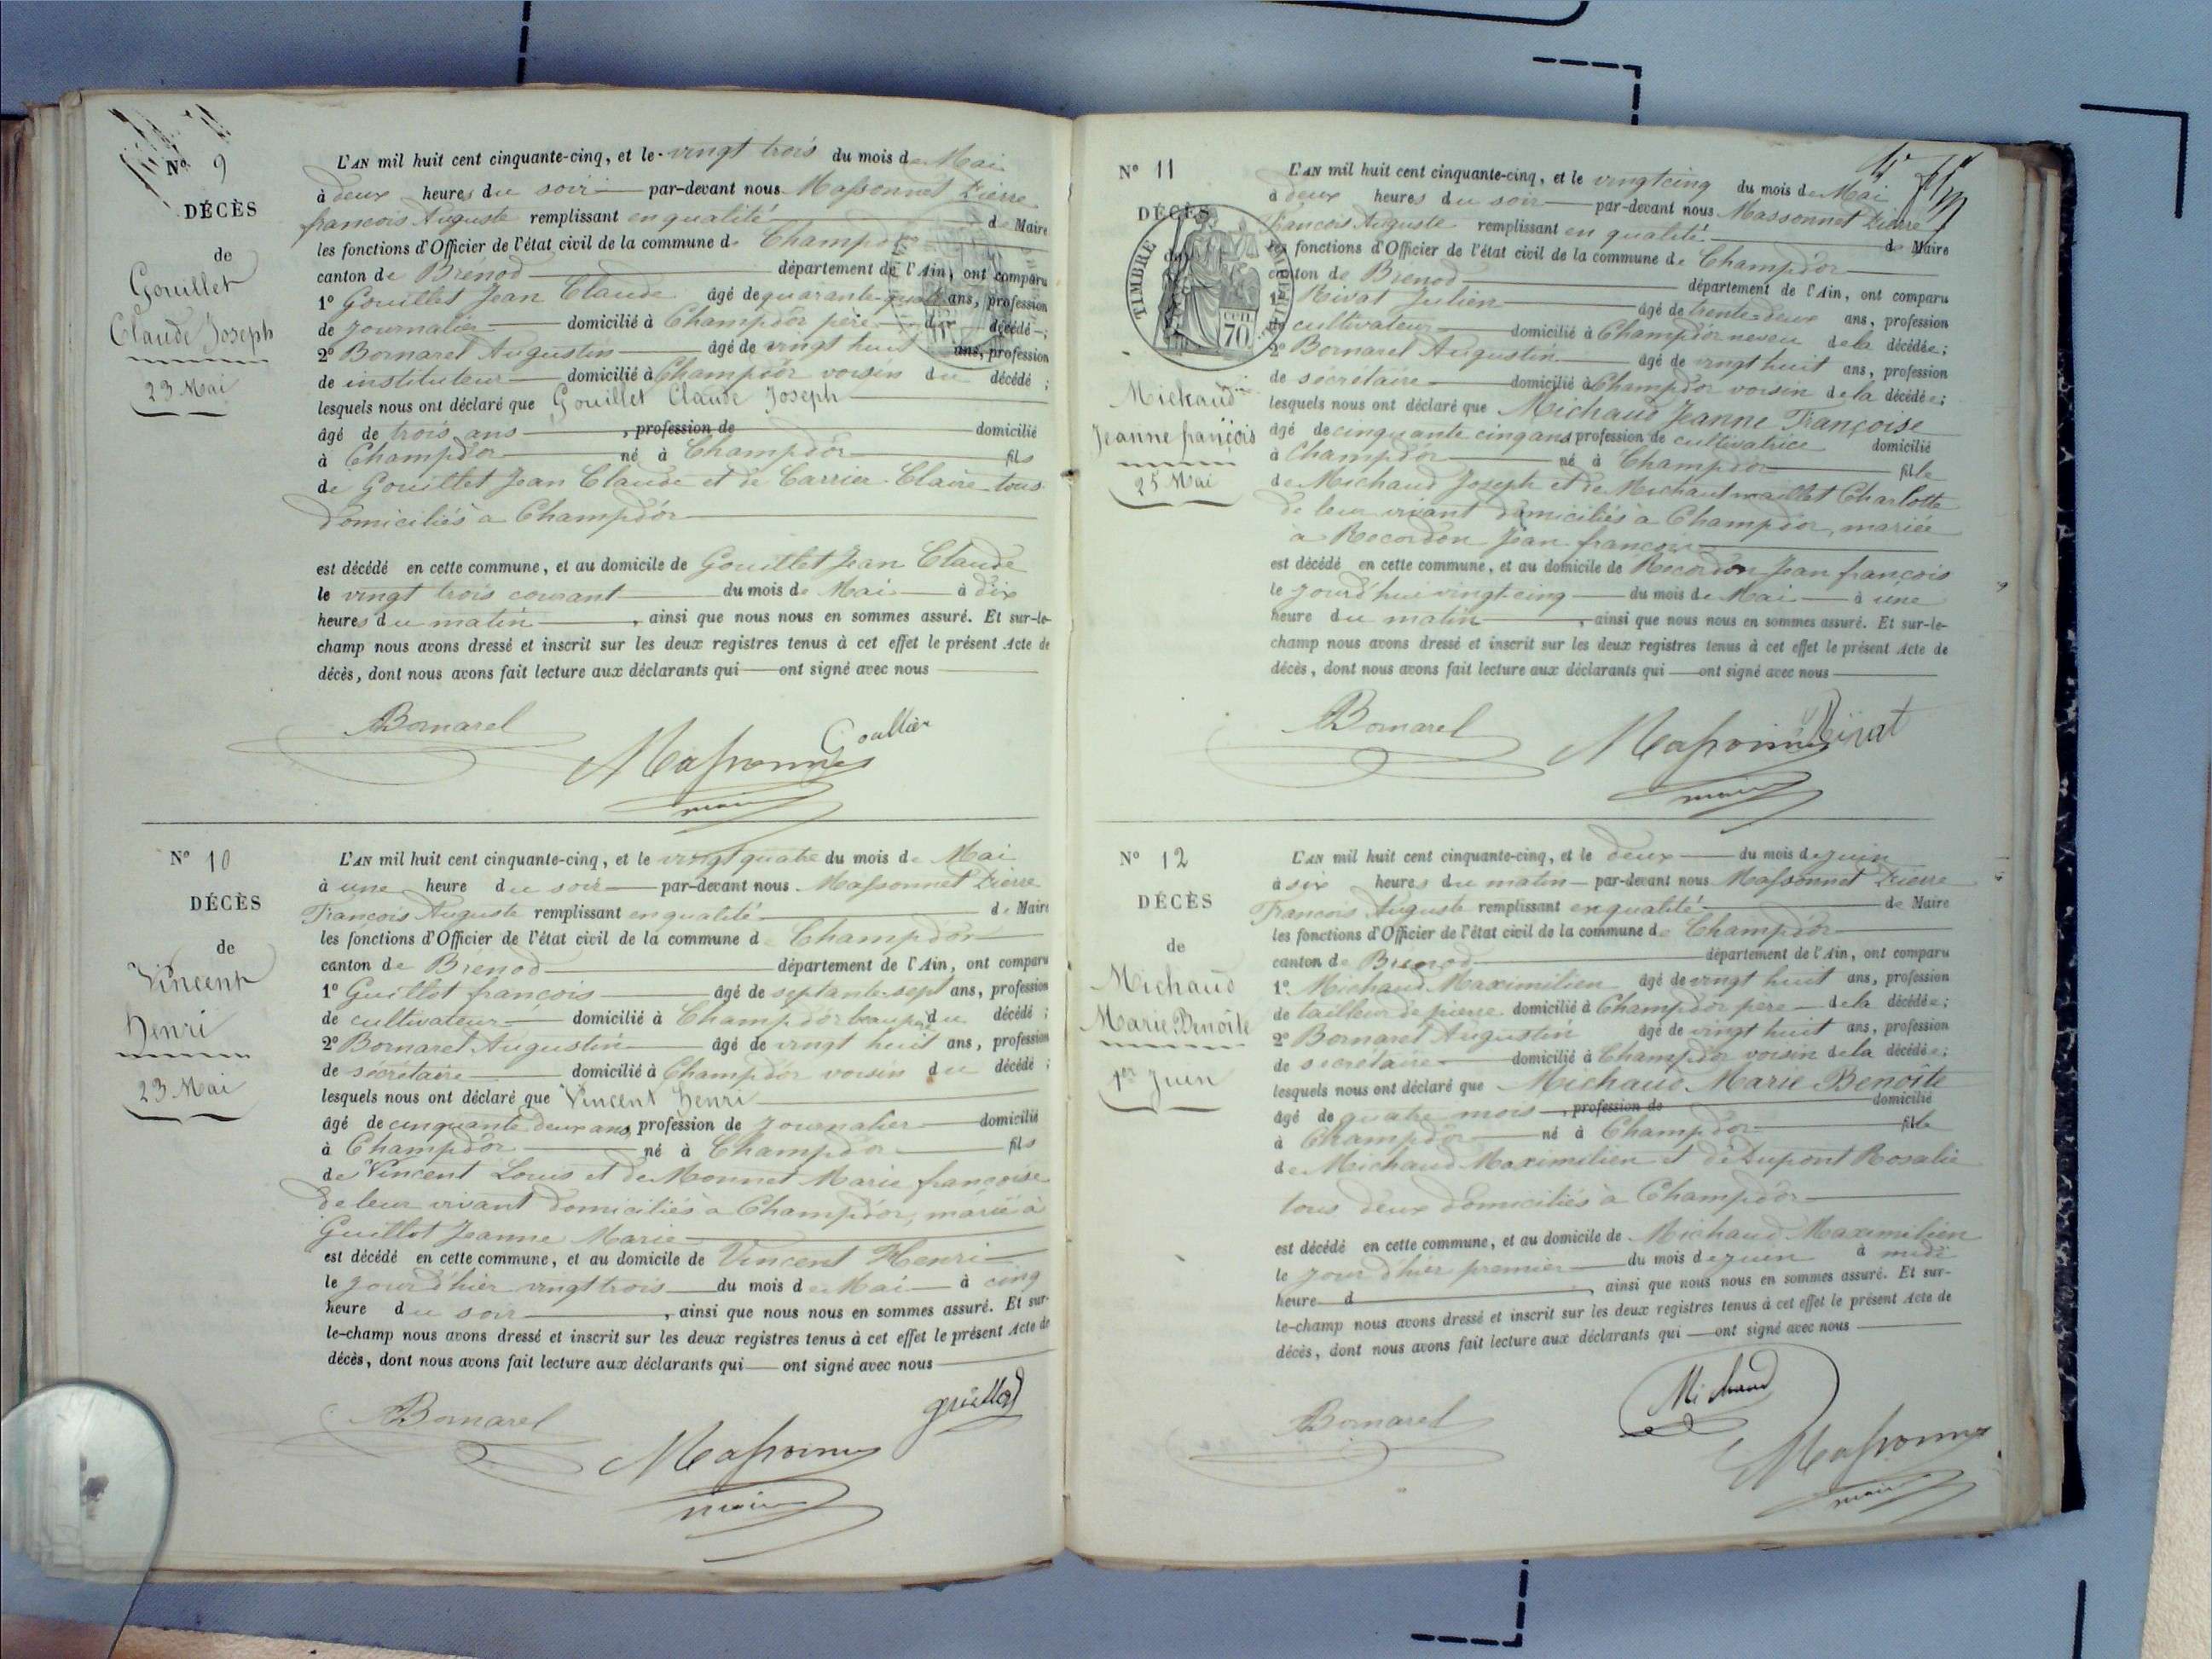 Nº 9
DÉCÈS
de
Gouillet
Claude Joseph
23 Mai
L'AN mil huit cent cinquante-cinq, et le vingt trois du mois de Mai
à deux heures du soir par-devant nous Massonnet Pierre
françois Auguste remplissant en qualité de Maire
les fonctions d'Officier de l'état civil de la commune de Champdor
canton de Brénod département de l'Ain, ont comparu
1º Gouillet Jean Claude âgé de quarante-quatre ans, profession
de journalier domicilié à Champdor père du décédé ;
2º Bornarel Augustin âgé de vingt huit ans, profession
de instituteur domicilié à Champdor voisin du décédé ;
lesquels nous ont déclaré que Gouillet Claude Joseph
âgé de trois ans , profession de domicilié
à Champdor né à Champdor fils
de Gouillet Jean Claude et de Carrier Claire tous
domiciliés à Champdor
est décédé en cette commune, et au domicile de Gouillet Jean Claude
le vingt trois courant du mois de Mai à dix
heures du matin , ainsi que nous nous en sommes assuré. Et sur-le-
champ nous avons dressé et inscrit sur les deux registres tenus à cet effet le présent Acte de
décès, dont nous avons fait lecture aux déclarants qui ont signé avec nous
Bornarel
Massonnet
maire
Nº 10
DÉCÈS
de
Vincent
henri
23 Mai
L'AN mil huit cent cinquante-cinq, et le vingt quatre du mois de Mai
à une heure du soir par-devant nous Massonnet Pierre
François Auguste remplissant en qualité de Maire
les fonctions d'Officier de l'état civil de la commune de Champdor
canton de Brénod département de l'Ain, ont comparu
1º Guillot françois âgé de septante-sept ans, profession
de cultivateur domicilié à Champdor beaupère du décédé ;
2º Bornarel Augustin âgé de vingt huit ans, profession
de sécrétaire domicilié à Champdor voisin du décédé ;
lesquels nous ont déclaré que Vincent henri
âgé de cinquante deux ans, profession de journalier domicilié
à Champdor né à Champdor fils
de Vincent Louis et de Monnet Marie françoise
de leur vivant domiciliés à Champdor, marié à
Guillot Jeanne Marie
est décédé en cette commune, et au domicile de Vincent Henri
le jour d'hier vingt trois du mois de Mai à cinq
heure du soir , ainsi que nous nous en sommes assuré. Et sur-
le-champ nous avons dressé et inscrit sur les deux registres tenus à cet effet le présent Acte de
décès, dont nous avons fait lecture aux déclarants qui ont signé avec nous
Bornarel
guillot
Massonnet
maire
Nº 11
DÉCÈS
TIMBRE IMPÉRIAL
70 cen
Michaud
Jeanne françois
25 Mai
L'AN mil huit cent cinquante-cinq, et le vingt cinq du mois de Mai
à deux heures du soir par-devant nous Massonnet Pierre
François Auguste remplissant en qualité de Maire
les fonctions d'Officier de l'état civil de la commune de Champdor
canton de Brenod département de l'Ain, ont comparu
1º Rivat Julien âgé de trente-deux ans, profession
de cultivateur domicilié à Champdor neveu de la décédée ;
2º Bornarel Augustin âgé de vingt huit ans, profession
de sécrétaire domicilié à Champdor voisin de la décédée ;
lesquels nous ont déclaré que Michaud Jeanne Françoise
âgé de cinquante cinq ans profession de cultivatrice domicilié
à Champdor né à Champdor fille
de Michaud Joseph et de Michaut maillet Charlotte
de leur vivant domiciliés à Champdor, mariée
à Recordon Jean françois
est décédé en cette commune, et au domicile de Recordon Jean françois
le jourd'hui vingt cinq du mois de Mai à une
heure du matin , ainsi que nous nous en sommes assuré. Et sur-le-
champ nous avons dressé et inscrit sur les deux registres tenus à cet effet le présent Acte de
décès, dont nous avons fait lecture aux déclarants qui ont signé avec nous
Bornarel
Massonnet
Rivat
maire
Nº 12
DÉCÈS
de
Michaud
Marie Benoîte
1er Juin
L'AN mil huit cent cinquante-cinq, et le deux du mois de juin
à six heures du matin par-devant nous Massonnet Pierre
François Auguste remplissant en qualité de Maire
les fonctions d'Officier de l'état civil de la commune de Champdor
canton de Brenod département de l'Ain, ont comparu
1º Michaud Maximilien âgé de vingt huit ans, profession
de tailleur de pierre domicilié à Champdor père de la décédée ;
2º Bornarel Augustin âgé de vingt huit ans, profession
de sécrétaire domicilié à Champdor voisin de la décédée ;
lesquels nous ont déclaré que Michaud Marie Benoîte
âgé de quatre mois , profession de domicilié
à Champdor né à Champdor fille
de Michaud Maximilien et de Dupont Rosalie
tous deux domiciliés à Champdor
est décédé en cette commune, et au domicile de Michaud Maximilien
le jour d'hier premier du mois de juin à midi
heure d , ainsi que nous nous en sommes assuré. Et sur-
le-champ nous avons dressé et inscrit sur les deux registres tenus à cet effet le présent Acte de
décès, dont nous avons fait lecture aux déclarants qui ont signé avec nous
Michaud
Bornarel
Massonnet
maire